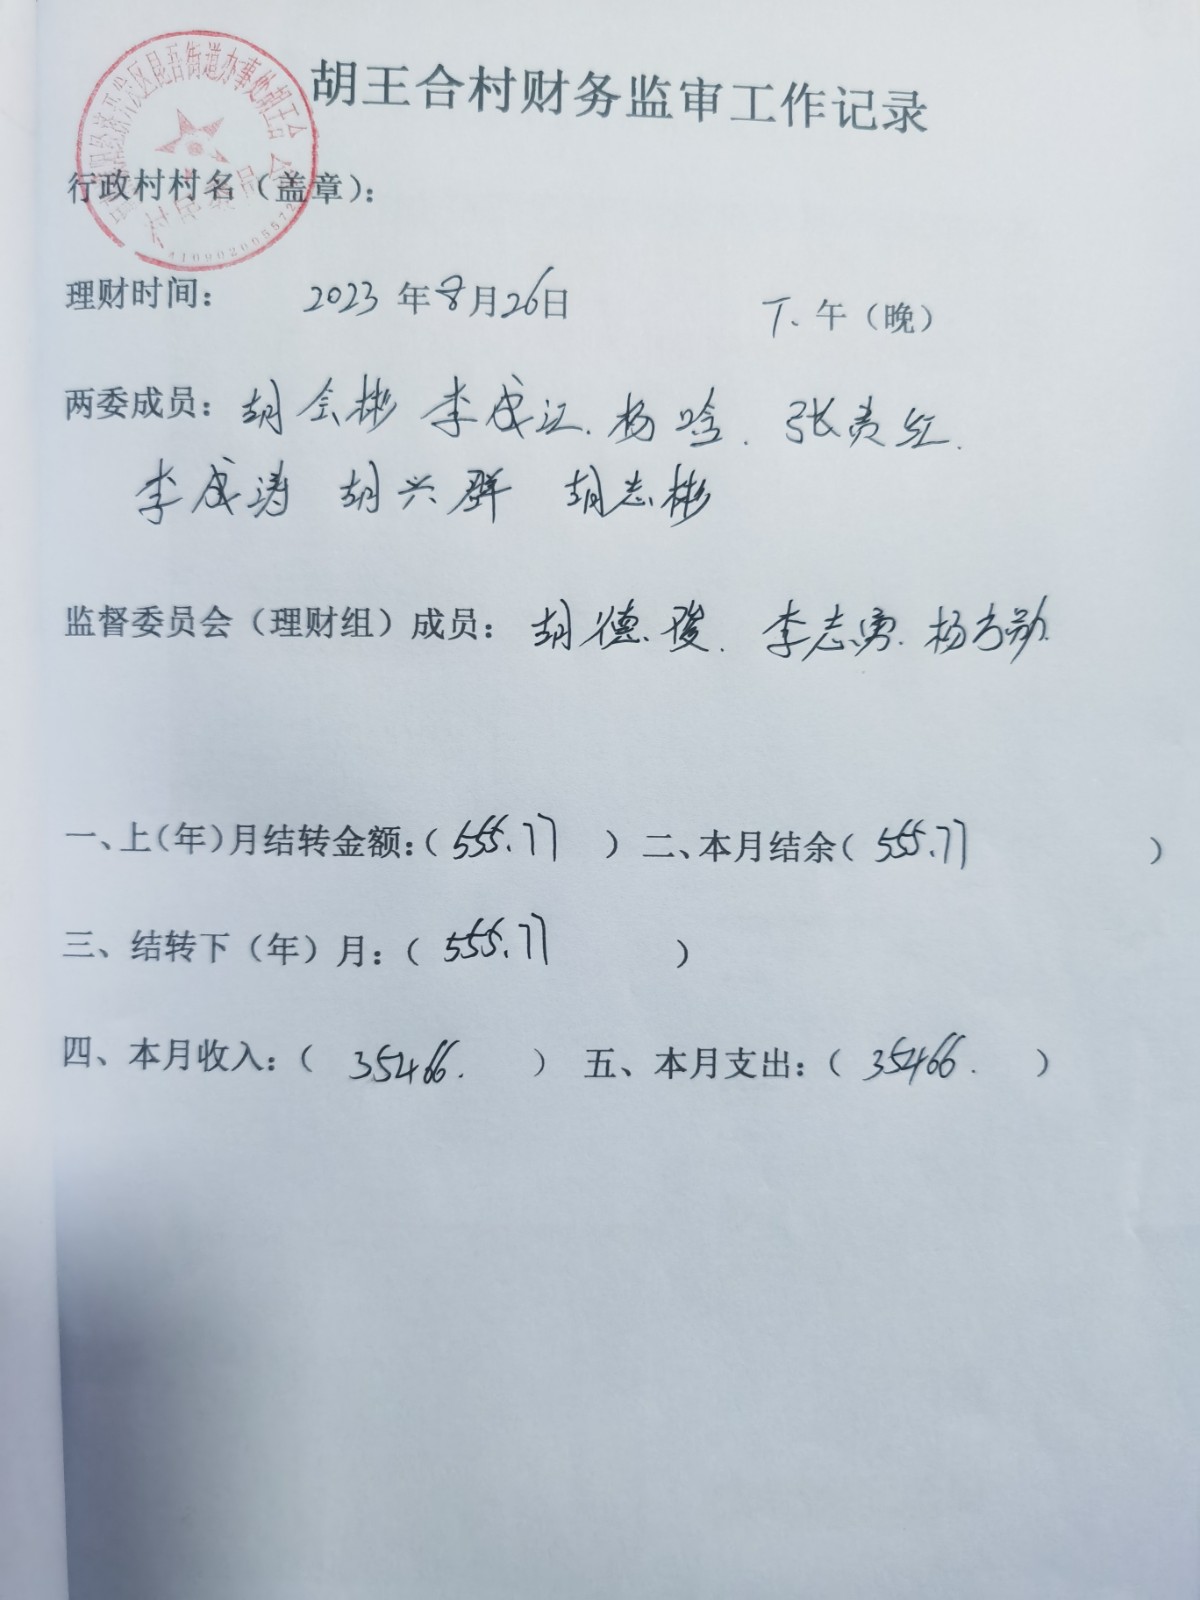 胡王合村财务监审工作记录
经济开发区昆吾街道办事处胡王合
村民委员会
行政村村名（盖章）：
理财时间： 2023 年 8 月 26 日 下、午（晚）
两委成员： 胡会彬 李成江、杨晗、张贵红、
李成涛 胡兴群 胡志彬
监督委员会（理财组）成员： 胡德俊、李志勇、杨方勋
一、上（年）月结转金额：（ 555.77 ） 二、本月结余（ 555.77 ）
三、结转下（年）月：（ 555.77 ）
四、本月收入：（ 35466. ） 五、本月支出：（ 35466. ）